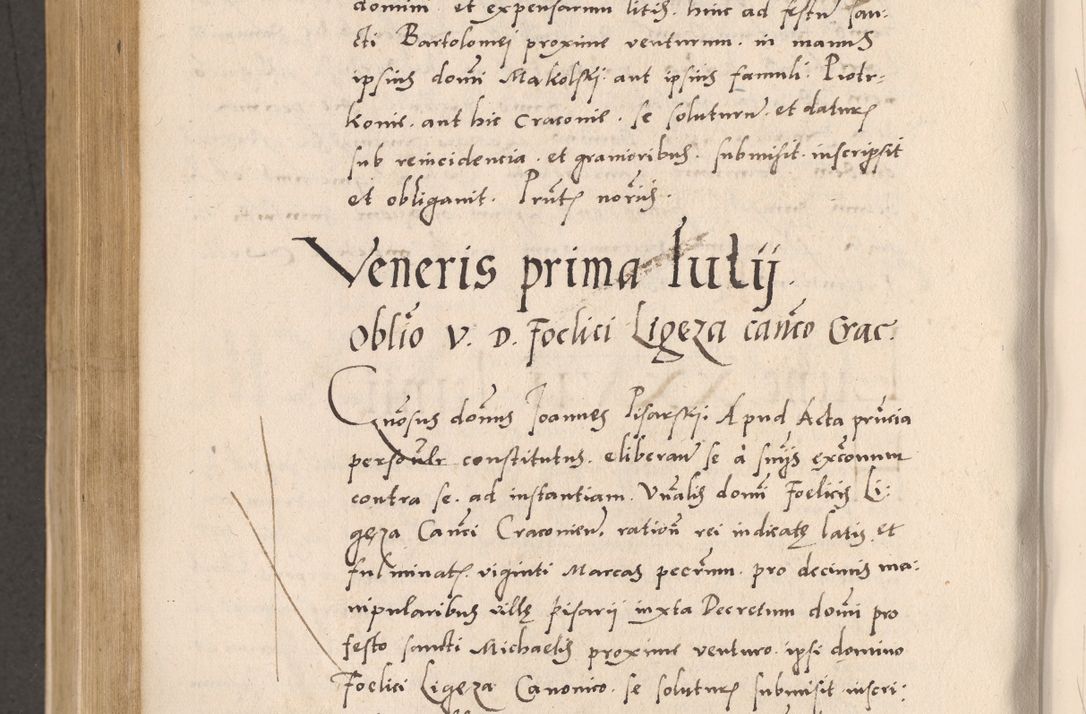 domini et expensarum litis hinc ad festũ san:
cti Bartolomej proxime venturum in manus
ipsius domĩ Makolskj aut ipsius famuli Piotr:
konie aut hic Craconie se soluturũ et daturũ
sub reincidencia et grauioribus submisit inscripsit
et obligauit. Pñtʒ norĩs.
Veneris prima Iulij.
Oblĩo V. D. Foelici Ligęza cañco Crac:
Gnõsus domñs Joannes Pisarskj Apud Acta pñcia
personlr constitutus eliberarũ se à sñijs exčomum
contra se ad instantiam Vñalis domĩ Foelicis Li:
gęza Canči Craconieñ. rationẽ rei indicatę latis et
fulminatʒ viginti Marcas pecũm pro decimis ma:
nipularibus villę Pisarij iuxta Decretum domĩ pro
festo sancti Michaelis proxime venturo ipsi domino
Foelici Ligęza Canonico se soluturũ submisit inscri: